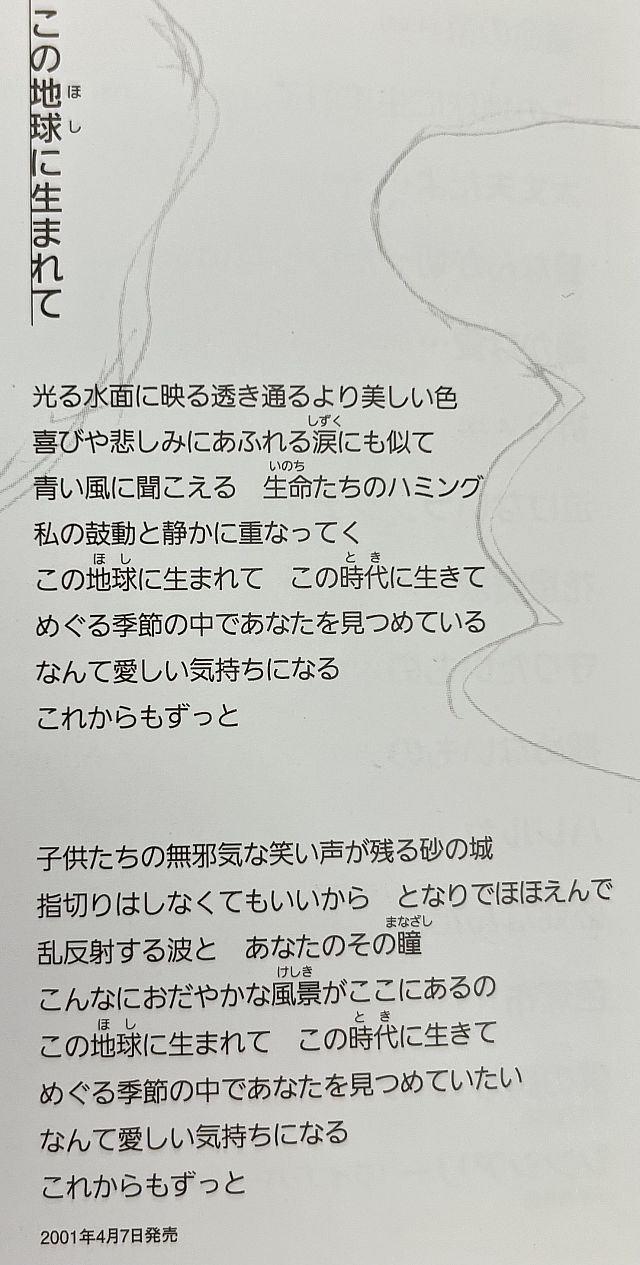 この地球に生まれて
ほし
光る水面に映る透き通るより美しい色
しずく
喜びや悲しみにあふれる涙にも似て
いのち
青い風に聞こえる　生命たちのハミング
私の鼓動と静かに重なってく
ほし　とき
この地球に生まれて　この時代に生きて
めぐる季節の中であなたを見つめている
なんて愛しい気持ちになる
これからもずっと
子供たちの無邪気な笑い声が残る砂の城
指切りはしなくてもいいから　となりでほほえんで
まなざし
乱反射する波と　あなたのその瞳
けしき
こんなにおだやかな風景がここにあるの
ほし　とき
この地球に生まれて　この時代に生きて
めぐる季節の中であなたを見つめていたい
なんて愛しい気持ちになる
これからもずっと
2001年4月7日発売